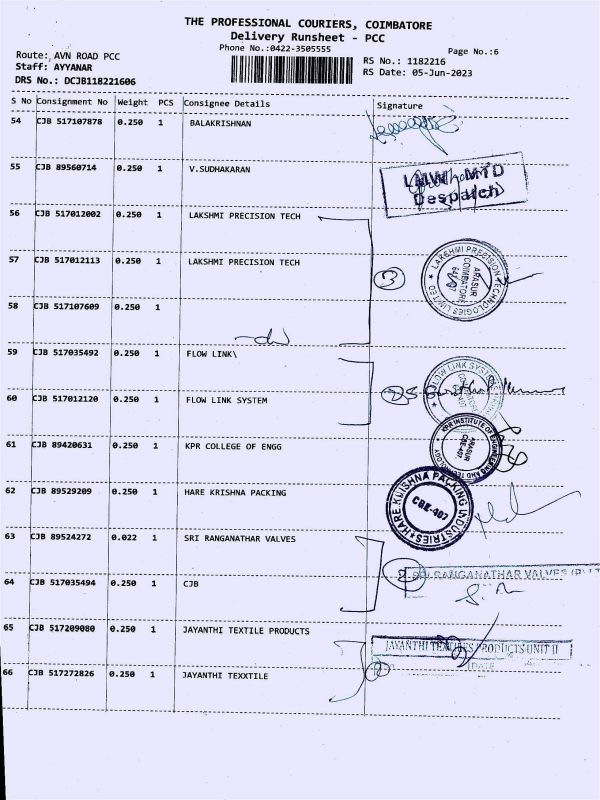 THE PROFESSIONAL COURIERS, COIMBATORE
Delivery Runsheet - PCC
Phone No.:0422-3505555
Page No.:6
Route: AVN ROAD PCC
RS No.: 1182216
Staff: AYYANAR
RS Date: 05-Jun-2023
DRS No.: DCJB118221606
S No Consignment No Weight PCS Consignee Details Signature
54 CJB 517107878 0.250 1 BALAKRISHNAN
55 CJB 89560714 0.250 1 V.SUDHAKARAN
LMW MTD
Despatch
56 CJB 517012002 0.250 1 LAKSHMI PRECISION TECH
57 CJB 517012113 0.250 1 LAKSHMI PRECISION TECH
3
LAKSHMI PRECISION TECHNOLOGIES LIMITED
ARASUR
COIMBATORE
58 CJB 517107609 0.250 1
59 CJB 517035492 0.250 1 FLOW LINK\
FLOW LINK SYSTEM
60 CJB 517012120 0.250 1 FLOW LINK SYSTEM
61 CJB 89420631 0.250 1 KPR COLLEGE OF ENGG
KPR INSTITUTE OF ENGINEERING AND TECHNOLOGY
ARASUR
CBE-407
62 CJB 89529209 0.250 1 HARE KRISHNA PACKING
HARE KRISHNA PACKING INDUSTRIES
CBE-407
63 CJB 89524272 0.022 1 SRI RANGANATHAR VALVES
64 CJB 517035494 0.250 1 CJB
2
SRI RANGANATHAR VALVES (P) LT
65 CJB 517209080 0.250 1 JAYANTHI TEXTILE PRODUCTS
JAYANTHI TEXTILES PRODUCTS UNIT II
DATE
66 CJB 517272826 0.250 1 JAYANTHI TEXXTILE
2